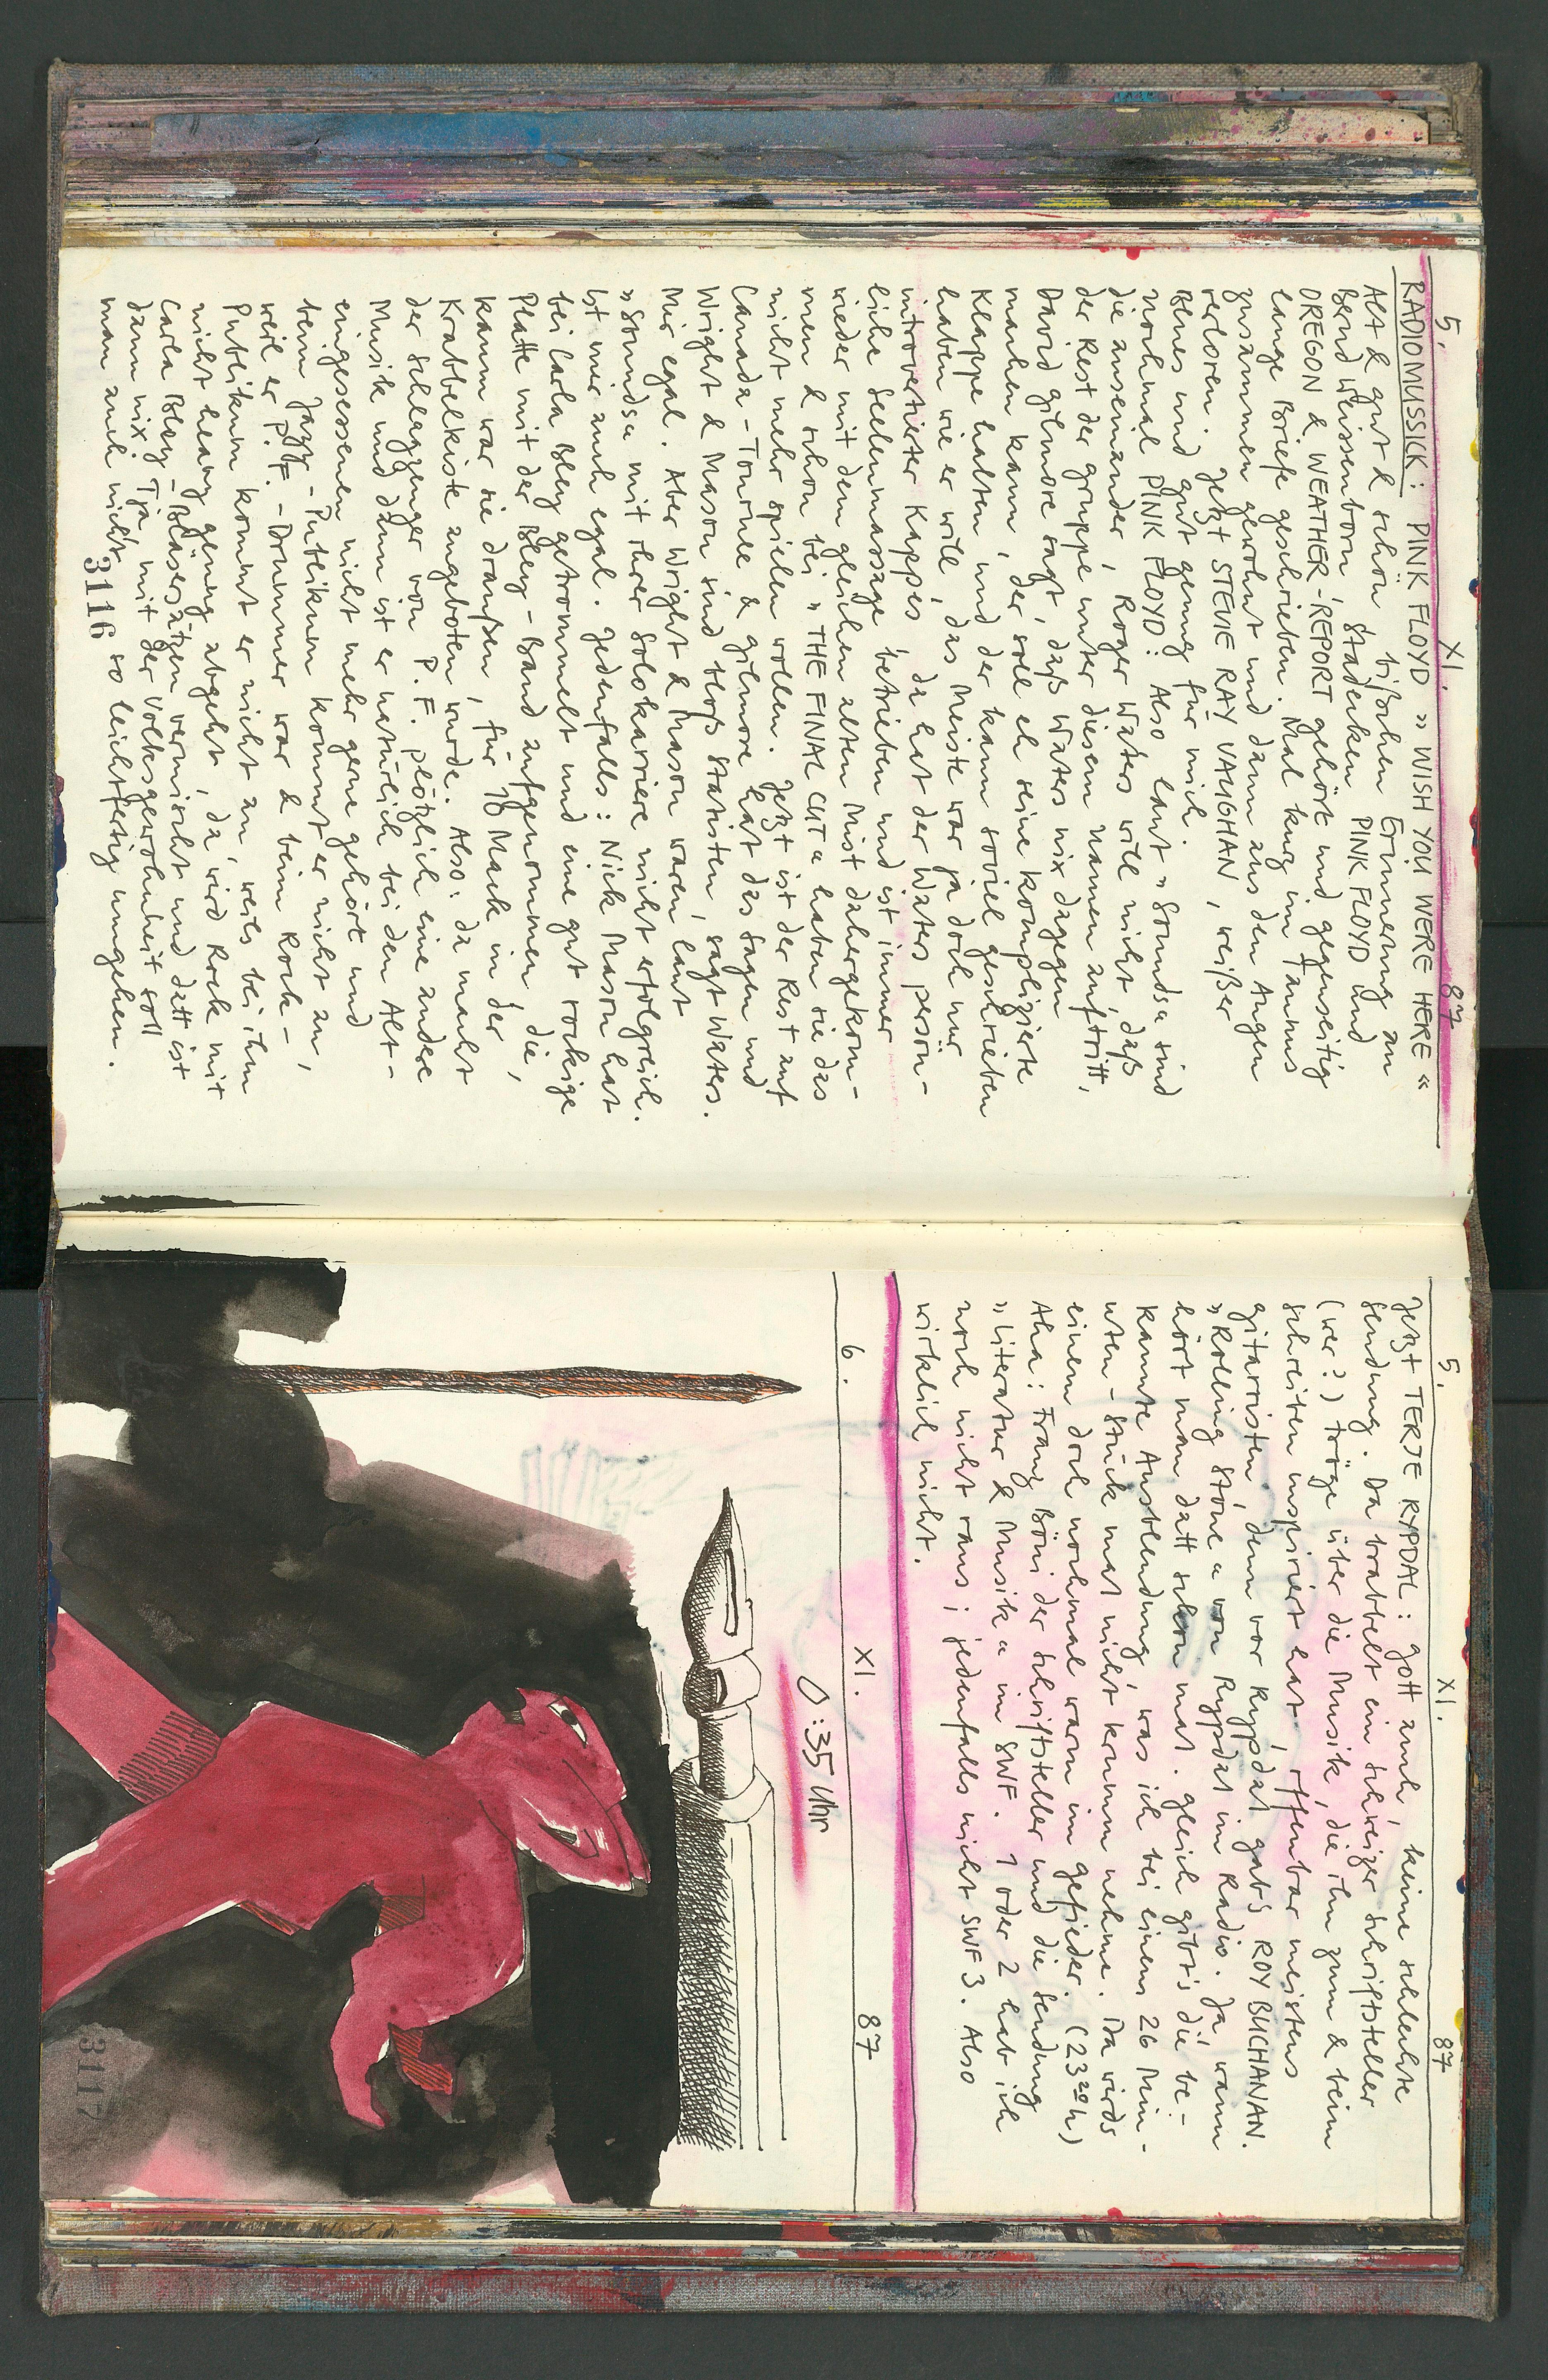 5. XI. 87
RADIOMUSSICK: PINK FLOYD »WISH YOU WERE HERE«
Alt & gut & schön bißchen Erinnerung an
Bernd Weissenborn, Stadecken. PINK FLOYD und
OREGON & WEATHER-REPORT gehört und gegenseitig
lange Briefe geschrieben. Mal kurz im Taunus
zusammen gewohnt und dann aus den Augen
verloren. Jetzt STEVIE RAY VAUGHAN, weißer
Blues und gut genug für mich.
nochmal PINK FLOYD: Also laut »Sounds« sind
die auseinander, Roger Waters will nicht daß
der Rest der Gruppe unter diesem Namen auftritt,
David Gilmore sagt, daß Waters nix dagegen
machen kann, der soll eh seine komplizierte
Klappe halten und der kann soviel geschrieben
haben wie er will, das Meiste war ja doch nur
introvertierter Kappes, da hat der Waters persön-
liche Seelenmassage betrieben und ist immer
wieder mit dem gleichen alten Mist dahergekom-
men & schon bei »THE FINAL CUT« haben sie das
nicht mehr spielen wollen. Jetzt ist der Rest auf
Canada-Tournee & Gilmore hat das Sagen und
Wright & Mason sind bloß Statisten, sagt Waters.
Mir egal. Aber Wright & Mason waren, laut
»Sounds« mit ihrer Solokarriere nicht erfolgreich.
Ist mir auch egal. Jedenfalls: Nick Mason hat
bei Carla Bley getrommelt und eine gut rockige
Platte mit der Bley-Band aufgenommen, die,
kaum war sie draußen, für 10 Mark in der
Krabbelkiste angeboten wurde. Also: da macht
der Schlagzeuger von P.F. plötzlich eine andere
Musik und dann ist er natürlich bei den Alt-
eingesessenen nicht mehr gerne gehört und
beim Jazz-Publikum kommt er nicht an,
weil er P.F.-Drummer war & beim Rock-
Publikum kommt er nicht an, weils bei ihm
nicht heavy genug abgeht, da wird Rock mit
Carla Bley-Bläsersätzen vermischt und datt ist
dann nix. Tja, mit der Volksgewohnheit soll
man auch nicht so leichtfertig umgehen.
3116
5. XI. 87
Jetzt TERJE RYPDAL: Gott auch, keine schlechte
Sendung. Da brabbelt ein schweizer Schriftsteller
(wer?) träge über die Musik, die ihn zum & beim
schreiben inspiriert hat, offenbar meistens
Gitarristen, denn vor Rypdal gab's ROY BUCHANAN.
»Rolling Stone« von Rypdal im Radio. Ja, wann
hört man datt schon mal. Gleich gibt's die be-
kannte Ausblendung, was ich bei einem 26 Min-
uten-Stück mal nicht krumm nehme. Da wirds
einem doch nochmal warm im Gefieder. (23²⁰h)
Aha: Franz Böni der Schriftsteller und die Sendung
»Literatur & Musik« im SWF. 1 oder 2 hab ich
noch nicht raus; jedenfalls nicht SWF3. Also
wirklich nicht.
6. XI. 87
0:35 Uhr
3117